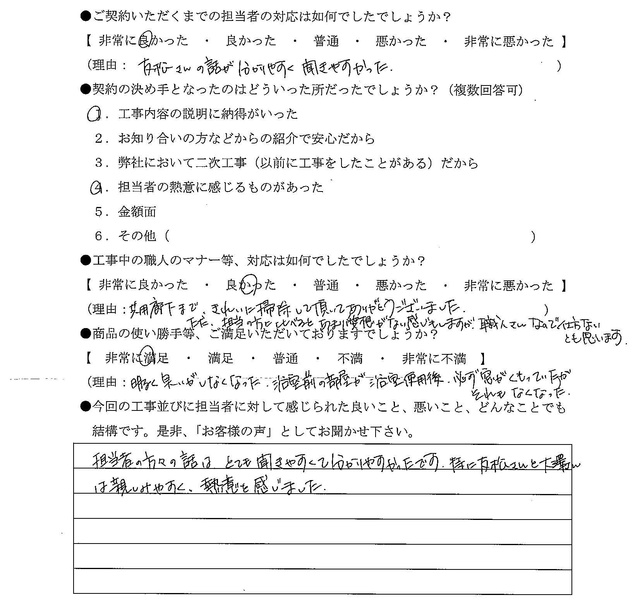 ●ご契約いただくまでの担当者の対応は如何でしたでしょうか?
【 非常に良かった ・ 良かった ・ 普通 ・ 悪かった ・ 非常に悪かった 】
(理由: 友松さんの話が分かりやすく聞きやすかった. )
●契約の決め手となったのはどういった所だったでしょうか?(複数回答可)
1.工事内容の説明に納得がいった
2.お知り合いの方などからの紹介で安心だから
3.弊社において二次工事(以前に工事をしたことがある)だから
4.担当者の熱意に感じるものがあった
5.金額面
6.その他( )
●工事中の職人のマナー等、対応は如何でしたでしょうか?
【 非常に良かった ・ 良かった ・ 普通 ・ 悪かった ・ 非常に悪かった 】
(理由: 廊下まで、きれいに掃除して頂いてありがとうございました. )
ただ、担当の方と比べるとあまり愛想がない感じもしますが、職人さんなので仕方ない
とも思います.
●商品の使い勝手等、ご満足いただいておりますでしょうか?
【 非常に満足 ・ 満足 ・ 普通 ・ 不満 ・ 非常に不満 】
(理由: 明るく臭いがしなくなった. 浴室前の部屋が浴室使用後、必ず窓がくもっていたが
それもなくなった.
●今回の工事並びに担当者に対して感じられた良いこと、悪いこと、どんなことでも
結構です。是非、「お客様の声」としてお聞かせ下さい。
担当者の方々の話は とても聞きやすくて分かりやすかったです. 特に友松さんと大澤さん
は親しみやすく、熱意を感じました.